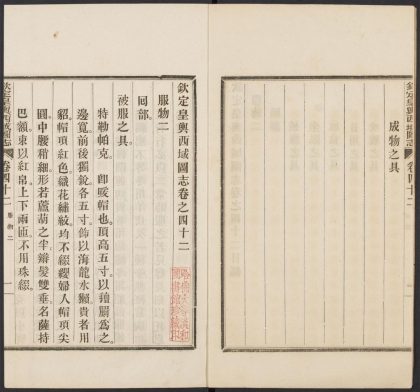 欽定皇輿西域圖志 卷四十二
成物之具
欽定皇輿西域圖志卷之四十二
哈佛大學漢和
圖書館珍藏印
服物二
回部
被服之具
特勒帕克。即暖帽也頂高五寸以氊罽爲之
邊寬前後獨銳各五寸飾以海龍水獺貴者用
貂帽頂紅色織花繡紋均不綴纓婦人帽頂尖
圓中腰稍細形若蘆葫之半辮髮雙垂名薩持
巴額束以紅帛上下兩匝不用珠綴
欽定皇輿西域圖志 卷四十二 服物二 一